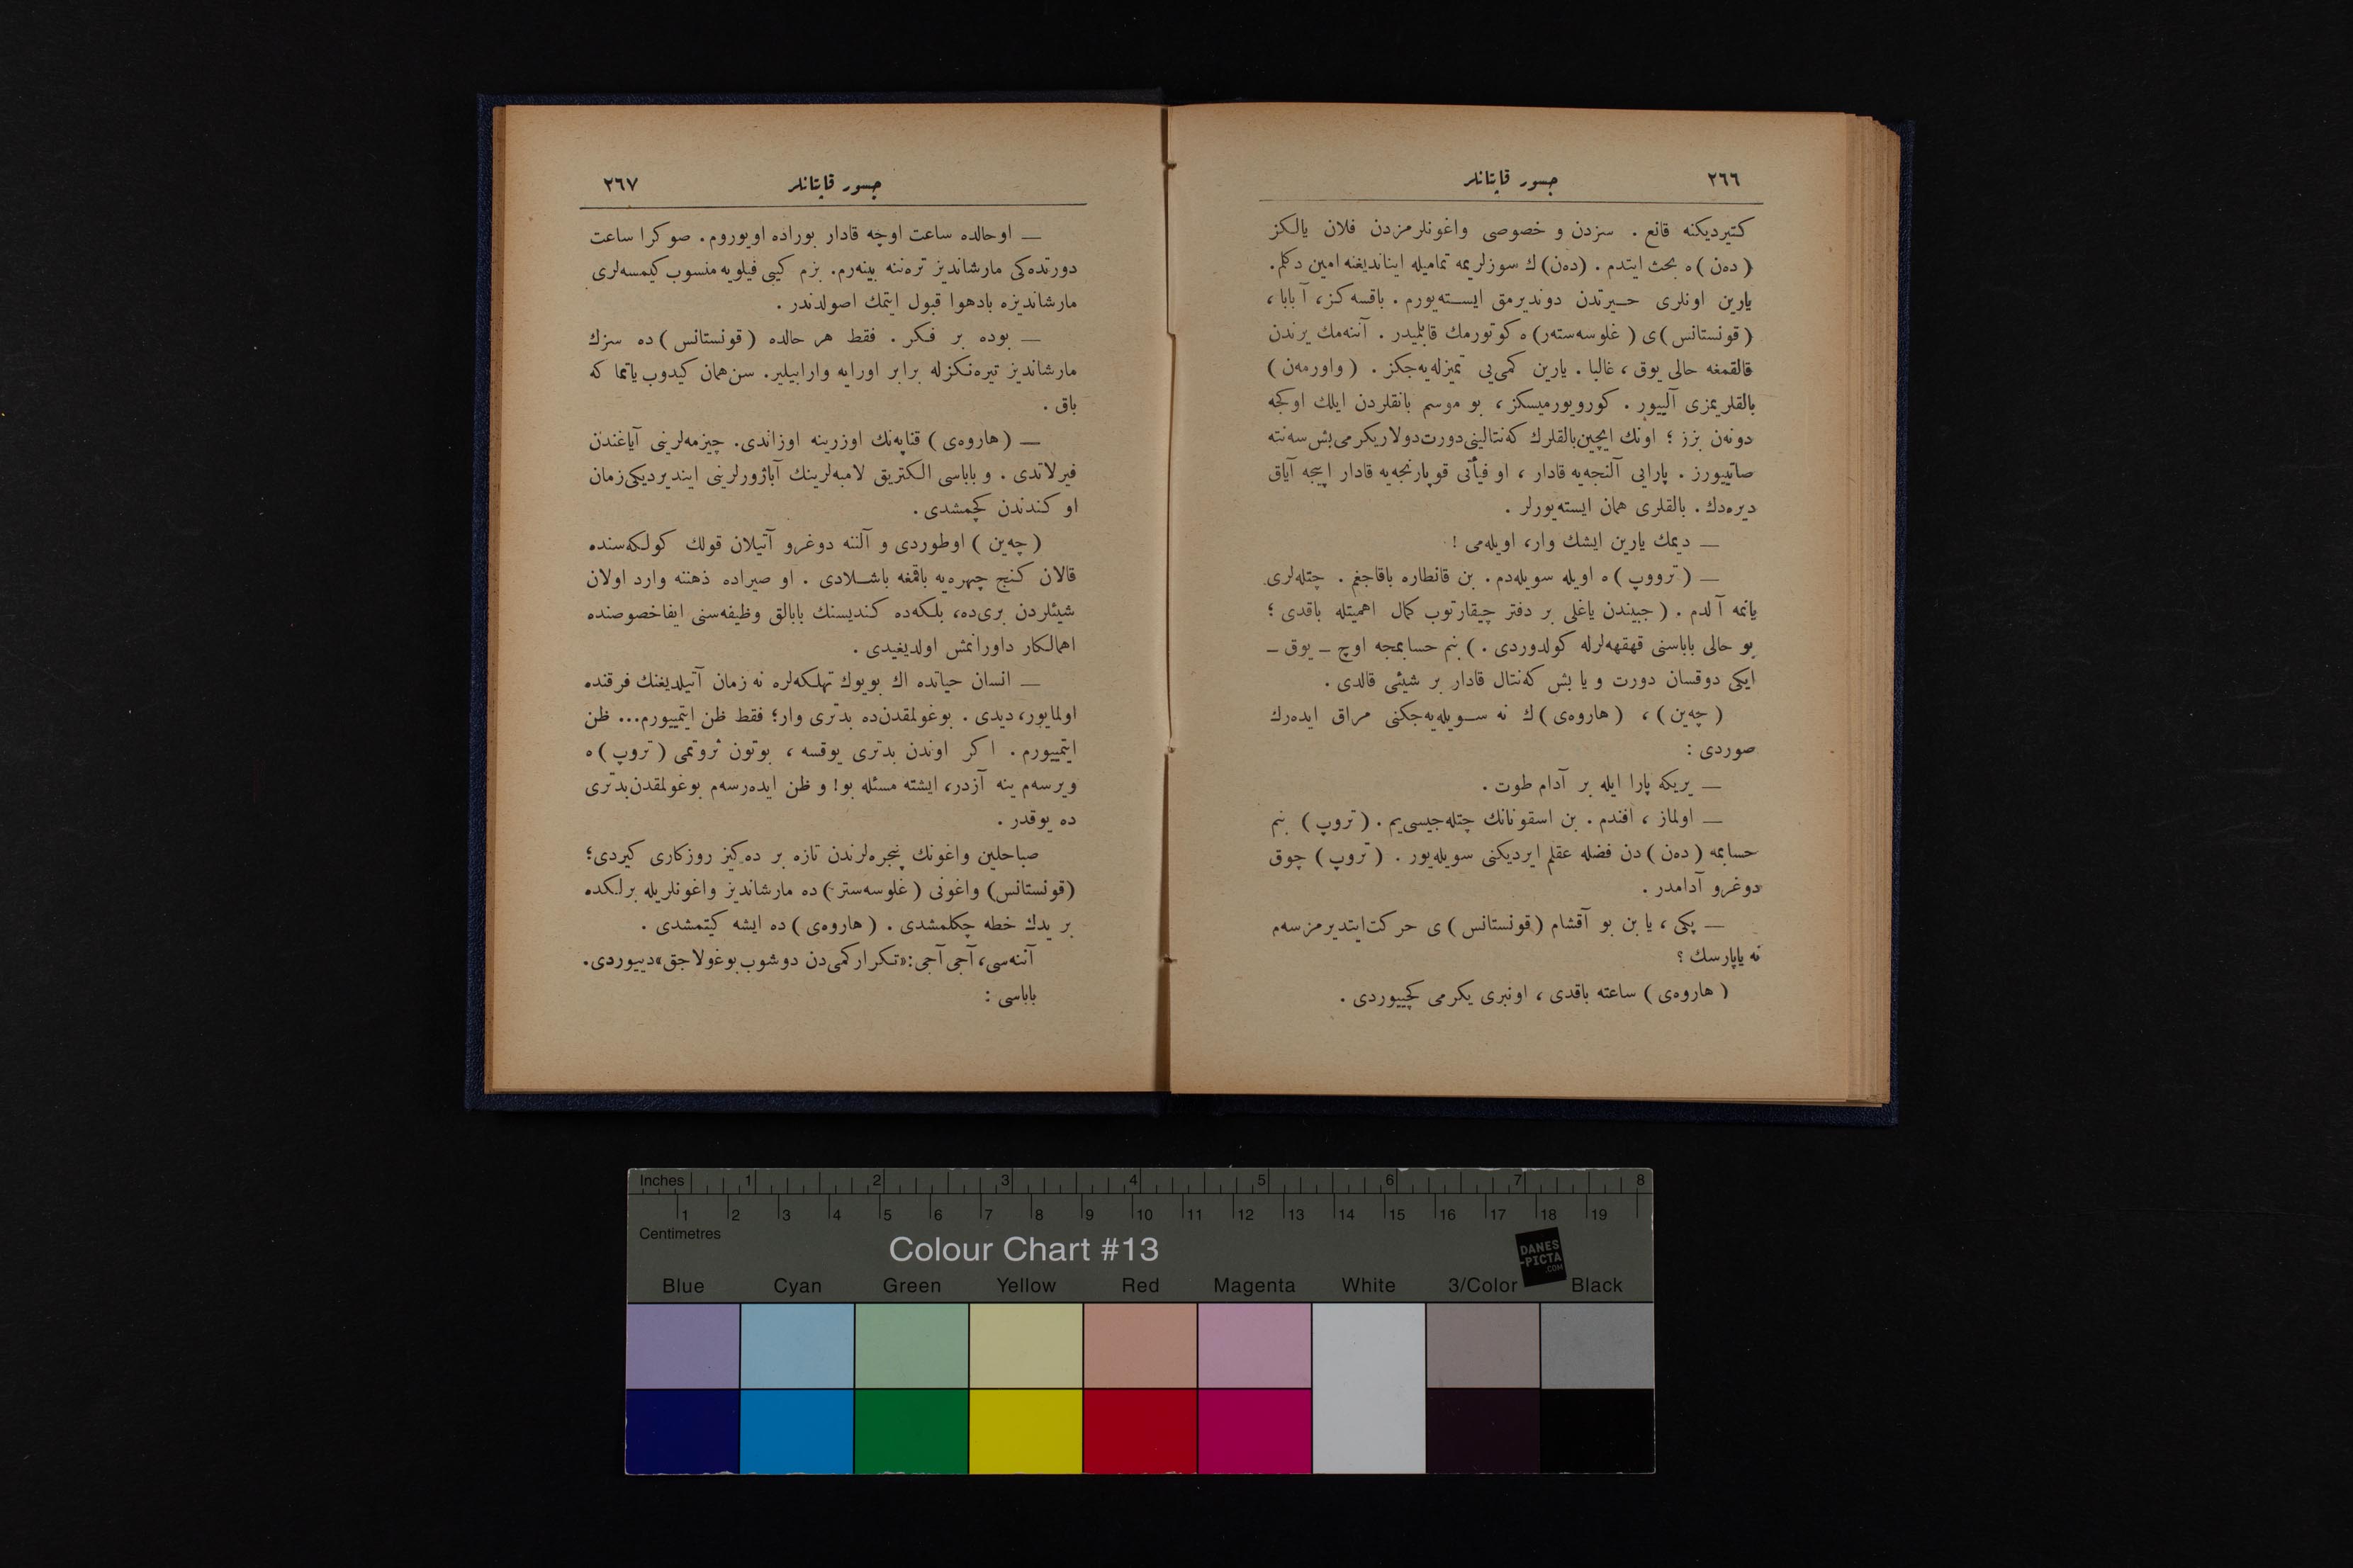 ٢٦٦ جسور قاپتانلر
كتيرديكنه قانع . سزدن و خصوصى واغونلرمزدن فلان يالكز
(دەن) ه بحث ايتدم . (دەن)ك سوزلريمه تماميله اينانديغنه امين دكلم.
يارين اونلرى حـيرتدن دونديرمق ايسـتەيورم . باقسەكز، آ بابا،
(قونستانس)ى (غلوسەستەر)ه كوتورمك قابلميدر . آننەمك يرندن
قالقمغه حالى يوق ، غالبا . يارين كمى‌يى تميزلەيەجكز . (واورمەن)
بالقلريمزى آلييور . كورويورميسكز ، بو موسم بانقلردن ايلك اوكجه
دونەن بزز ؛ اونك ايچين بالقلرك كەنتالينى دورت دولار يكرمى بش سەنته
صاتييورز . پارايى آلنجەيه قادار ، او فيأتى قوپارنجەيه قادار اييجه آياق
ديرەدك . بالقلرى همان ايستەيورلر .
— ديمك يارين ايشك وار، اويلەمى !
— (ترووپ)ه اويله سويلەدم . بن قانطاره باقاجغم . چتلەلرى
يانمه آلدم . (جيبندن ياغلى بر دفتر چيقارتوب كمال اهميتله باقدى ؛
بو حالى باباسنى قهقهەلرله كولدوردى .) بنم حسابمجه اوچ — يوق —
ايكى دوقسان دورت و يا بش كەنتال قادار بر شيئى قالدى .
(چەين) ، (هاروەى)ك نه سـويلەيەجكنى مراق ايدەرك
صوردى :
— يريكه پارا ايله بر آدام طوت .
— اولماز ، افندم . بن اسقونانك چتلەجيسى‌يم . (تروپ) بنم
حسابمه (دەن)دن فضله عقلم ايرديكنى سويلەيور . (تروپ) چوق
دوغرو آدامدر .
— پكى ، يا بن بو آقشام (قونستانس)ى حركت ايتديرمزسەم
نه ياپارسك ؟
(هاروەى) ساعته باقدى ، اونبرى يكرمى كچييوردى .
جسور قاپتانلر ٢٦٧
— اوحالده ساعت اوچه قادار بوراده اويوروم. صوكرا ساعت
دورتدەكى مارشانديز ترەننه بينەرم. بزم كيبى فيلويه منسوب كيمسەلرى
مارشانديزه بادهوا قبول ايتمك اصولدندر .
— بوده بر فـكر . فقط هر حالده (قونستانس) ده سزك
مارشانديز تيرەنكزله برابر اورايه وارابيلير. سن همان كيدوب ياتما كه
باق .
— (هاروەى) قناپەنك اوزرينه اوزاندى. چيزمەلرينى آياغندن
فيرلاتدى . و باباسى الـكتريق لامبەلرينك آباژورلرينى اينديرديكى زمان
او كندندن كچمشدى .
(چەين) اوطوردى و آلننه دوغرو آتيلان قولك كولكەسنده
قالان كنج چهرەيه باقمغه باشـلادى . او صيراده ذهننه وارد اولان
شيئلردن برى‌ده، بلكەده كنديسنك بابالق وظيفەسنى ايفا خصوصنده
اهمالكار داورانمش اولديغيدى .
— انسان حياتده اك بويوك تهلكەلره نه زمان آتيلديغنك فرقنده
اولمايور، ديدى . بوغولمقدن‌ده بدترى وار؛ فقط ظن ايتمييورم... ظن
ايتمييورم . اكر اوندن بدترى يوقسه ، بوتون ثروتمى (تروپ)ه
ويرسەم ينه آزدر، ايشته مسئله بو! و ظن ايدەرسەم بوغولمقدن بدترى
ده يوقدر .
صباحلين واغونك پنجرەلرندن تازه بر دەكيز روزكارى كيردى؛
(قونستانس) واغونى (غلوسەستر) ده مارشانديز واغونلريله برلكده
بر يدك خطه چكلمشدى . (هاروەى) ده ايشه كيتمشدى .
آننەسى، آجى آجى: «تـكرار كمى‌دن دوشوب بوغولاجق» دييوردى.
باباسى :
Inches 1 2 3 4 5 6 7 8
1 2 3 4 5 6 7 8 9 10 11 12 13 14 15 16 17 18 19
Centimetres
Colour Chart #13
DANES
-PICTA
.COM
Blue Cyan Green Yellow Red Magenta White 3/Color Black